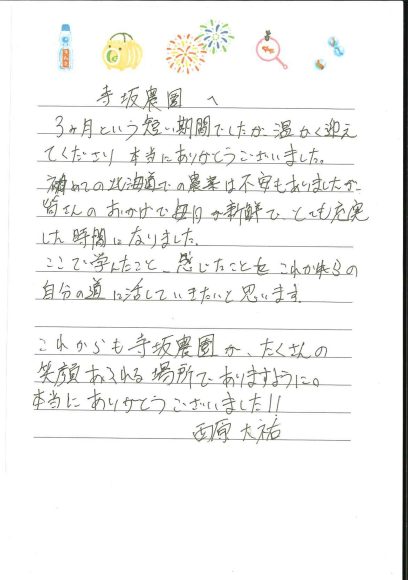 寺坂農園へ
3ヶ月という短い期間でしたが、温かく迎え
てくださり、本当にありがとうございました。
初めての北海道での農業は不安もありましたが、
皆さんのおかげで毎日が新鮮で、とても充実
した時間になりました。
ここで学んだこと、感じたことを、これからの
自分の道に活していきたいと思います。
これからも寺坂農園が、たくさんの
笑顔あふれる場所でありますように。
本当にありがとうございました!!
西原 大祐